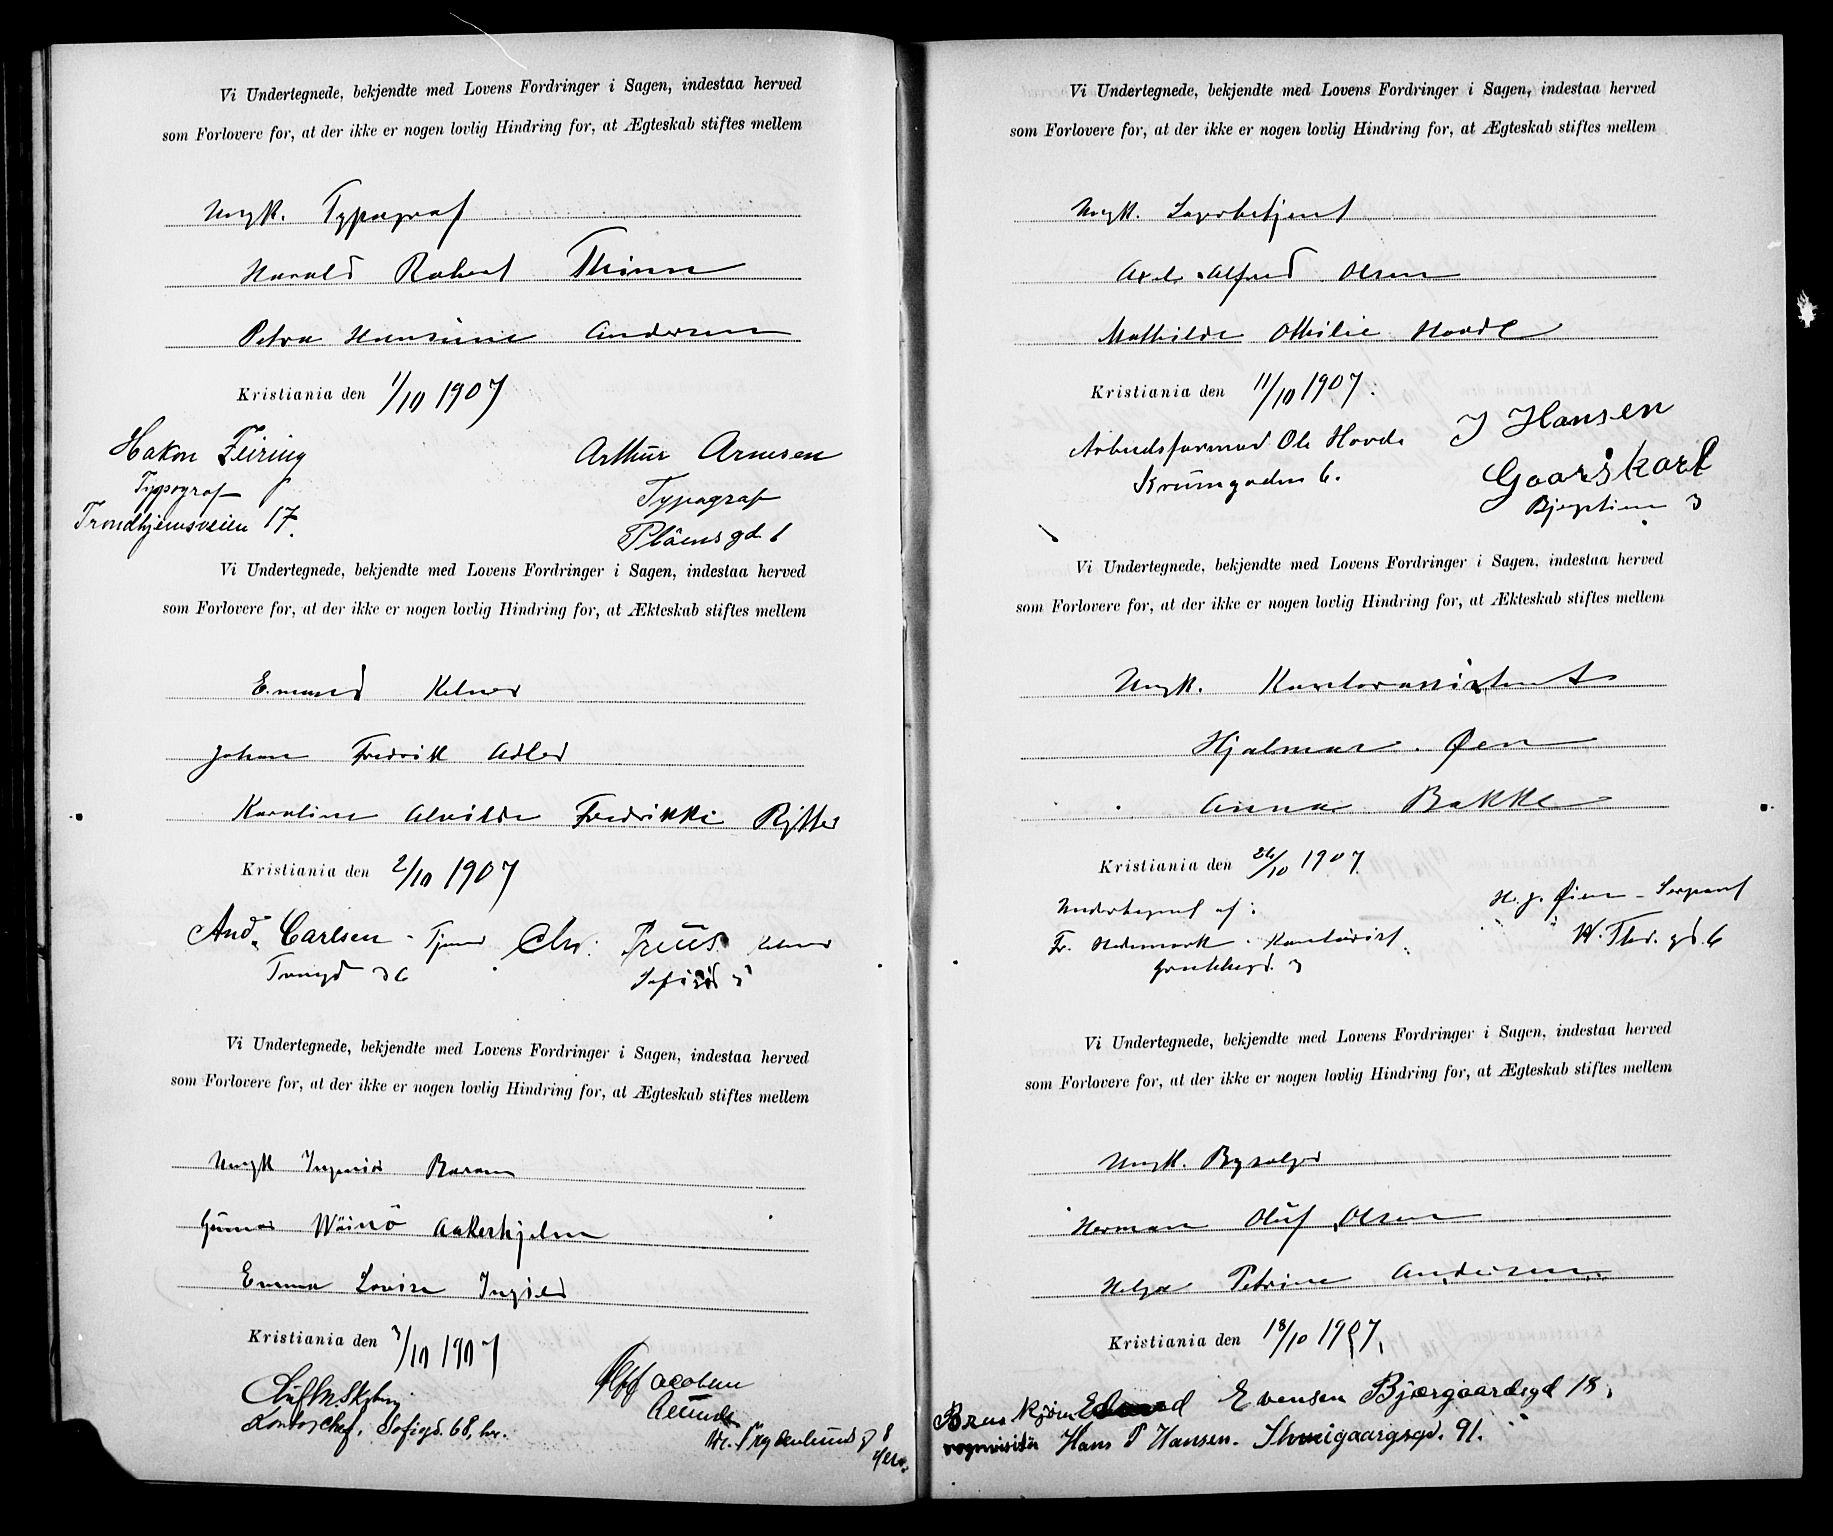 Vi Undertegnede, bekjendte med Lovens Fordringer i Sagen, indestaa herved
som Forlovere for, at der ikke er nogen lovlig Hindring for, at Ægteskab stiftes mellem
Ungk. Typograf
Harald Robert Thinn
Petra Hansine Andersen
Kristiania den 1/10 1907
Hakon Feiring
Typograf
Trondhjemsveien 17.
Arthur Arnesen
Typograf
Pløensgd 1
Vi Undertegnede, bekjendte med Lovens Fordringer i Sagen, indestaa herved
som Forlovere for, at der ikke er nogen lovlig Hindring for, at Ækteskab stiftes mellem
Enmand Kelner
Johan Fredrik Adler
Karoline Alvilde Fredrikke Rytter
Kristiania den 2/10 1907
And. Carlsen - Tjener
Torvgd 36
Chr. Preus Kelner
Vi Undertegnede, bekjendte med Lovens Fordringer i Sagen, indestaa herved
som Forlovere for, at der ikke er nogen lovlig Hindring for, at Ægteskab stiftes mellem
Ungk Ingeniør Baron
Gunnar Wäinö Aakerhjelm
Emma Lovise Ingier
Kristiania den 3/10 1907
Kontorchef, Sofigd. 68, hr.
Jacobsen
Vi Undertegnede, bekjendte med Lovens Fordringer i Sagen, indestaa herved
som Forlovere for, at der ikke er nogen lovlig Hindring for, at Ægteskab stiftes mellem
Ungk. Lagerbetjent
Axel Alfred Olsen
Mathilde Othilie Hovde
Kristiania den 11/10 1907.
Arbeidsformand Ole Hovde
Krumgaden 6.
J Hansen
Gaarskarl
3
Vi Undertegnede, bekjendte med Lovens Fordringer i Sagen, indestaa herved
som Forlovere for, at der ikke er nogen lovlig Hindring for, at Ækteskab stiftes mellem
Ungk. Kontorassistent
Hjalmar Øen
Anna Bakke
Kristiania den 26/10 1907.
Undertegnet af:
Fr. Hedemark - Kontorist
3
H. J. Øien - Sergeant
W. Thr. gd. 6
Vi Undertegnede, bekjendte med Lovens Fordringer i Sagen, indestaa herved
som Forlovere for, at der ikke er nogen lovlig Hindring for, at Ægteskab stiftes mellem
Ungk. Bysælger
Herman Oluf Olsen
Helga Petrine Andersen
Kristiania den 18/10 1907.
Evensen Bjærgaardsgd 18.
Hans P Hansen. Thmeigaargsgd. 91.